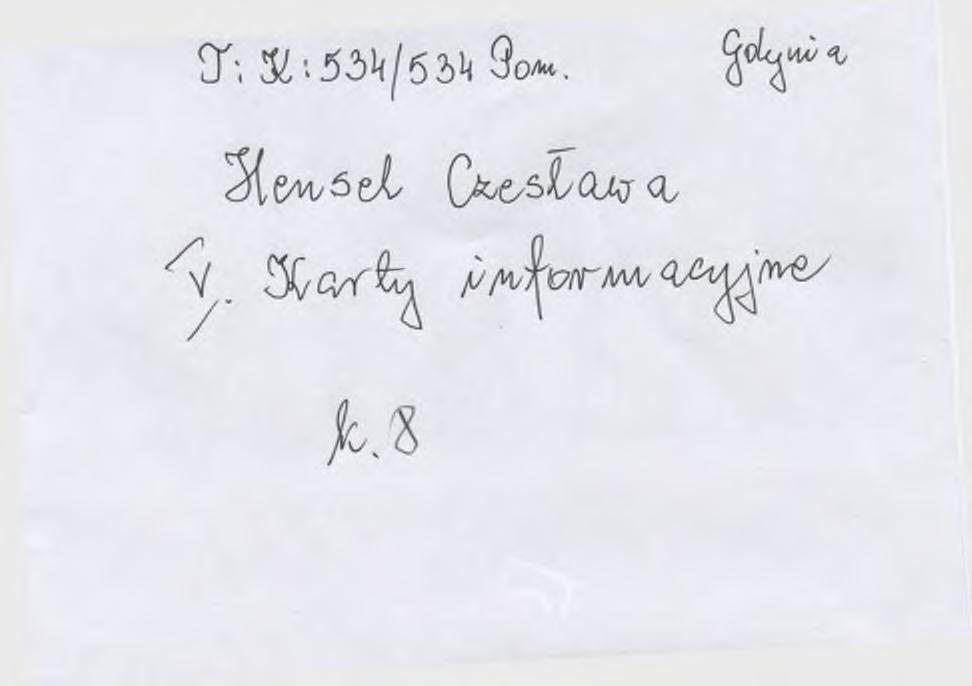 T: K: 534/534 Pom. Gdynia
Hensel Czesława
V. Karty informacyjne
k. 8